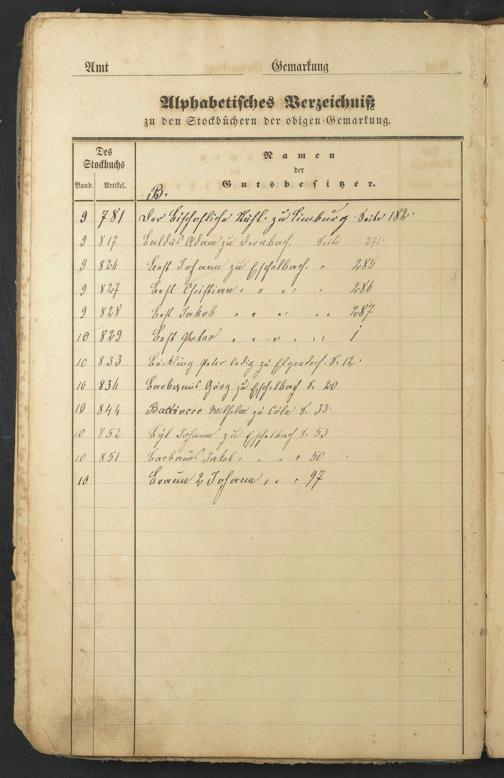 Amt Gemarkung
Alphabetisches Verzeichniß
zu den Stockbüchern der obigen Gemarkung.
Des Stockbuchs
Namen
der
Band. Artikel. Gutsbesitzer.
B.
9 781 Der Bischofliche Stuhl zu Limburg Seite 182.
9 817 Baldus Adam zu Dernbach. Seite 271.
9 826 Best Johann zu Eschelbach. " 285
9 827 Best Christian " " " 286
9 828 Best Jakob " " " 287
10 829 Best Peter " " " 1
10 833 Böckling Peter ledig zu Elgendorf. S. 12.
10 836 Georg zu Eschelbach S. 20
10 844 Wilhelm zu Cöln S. 33.
10 852 Johann zu Eschelbach S. 53
10 851 Jakob " " " 50
10 Braun 2 Johann " " " 97